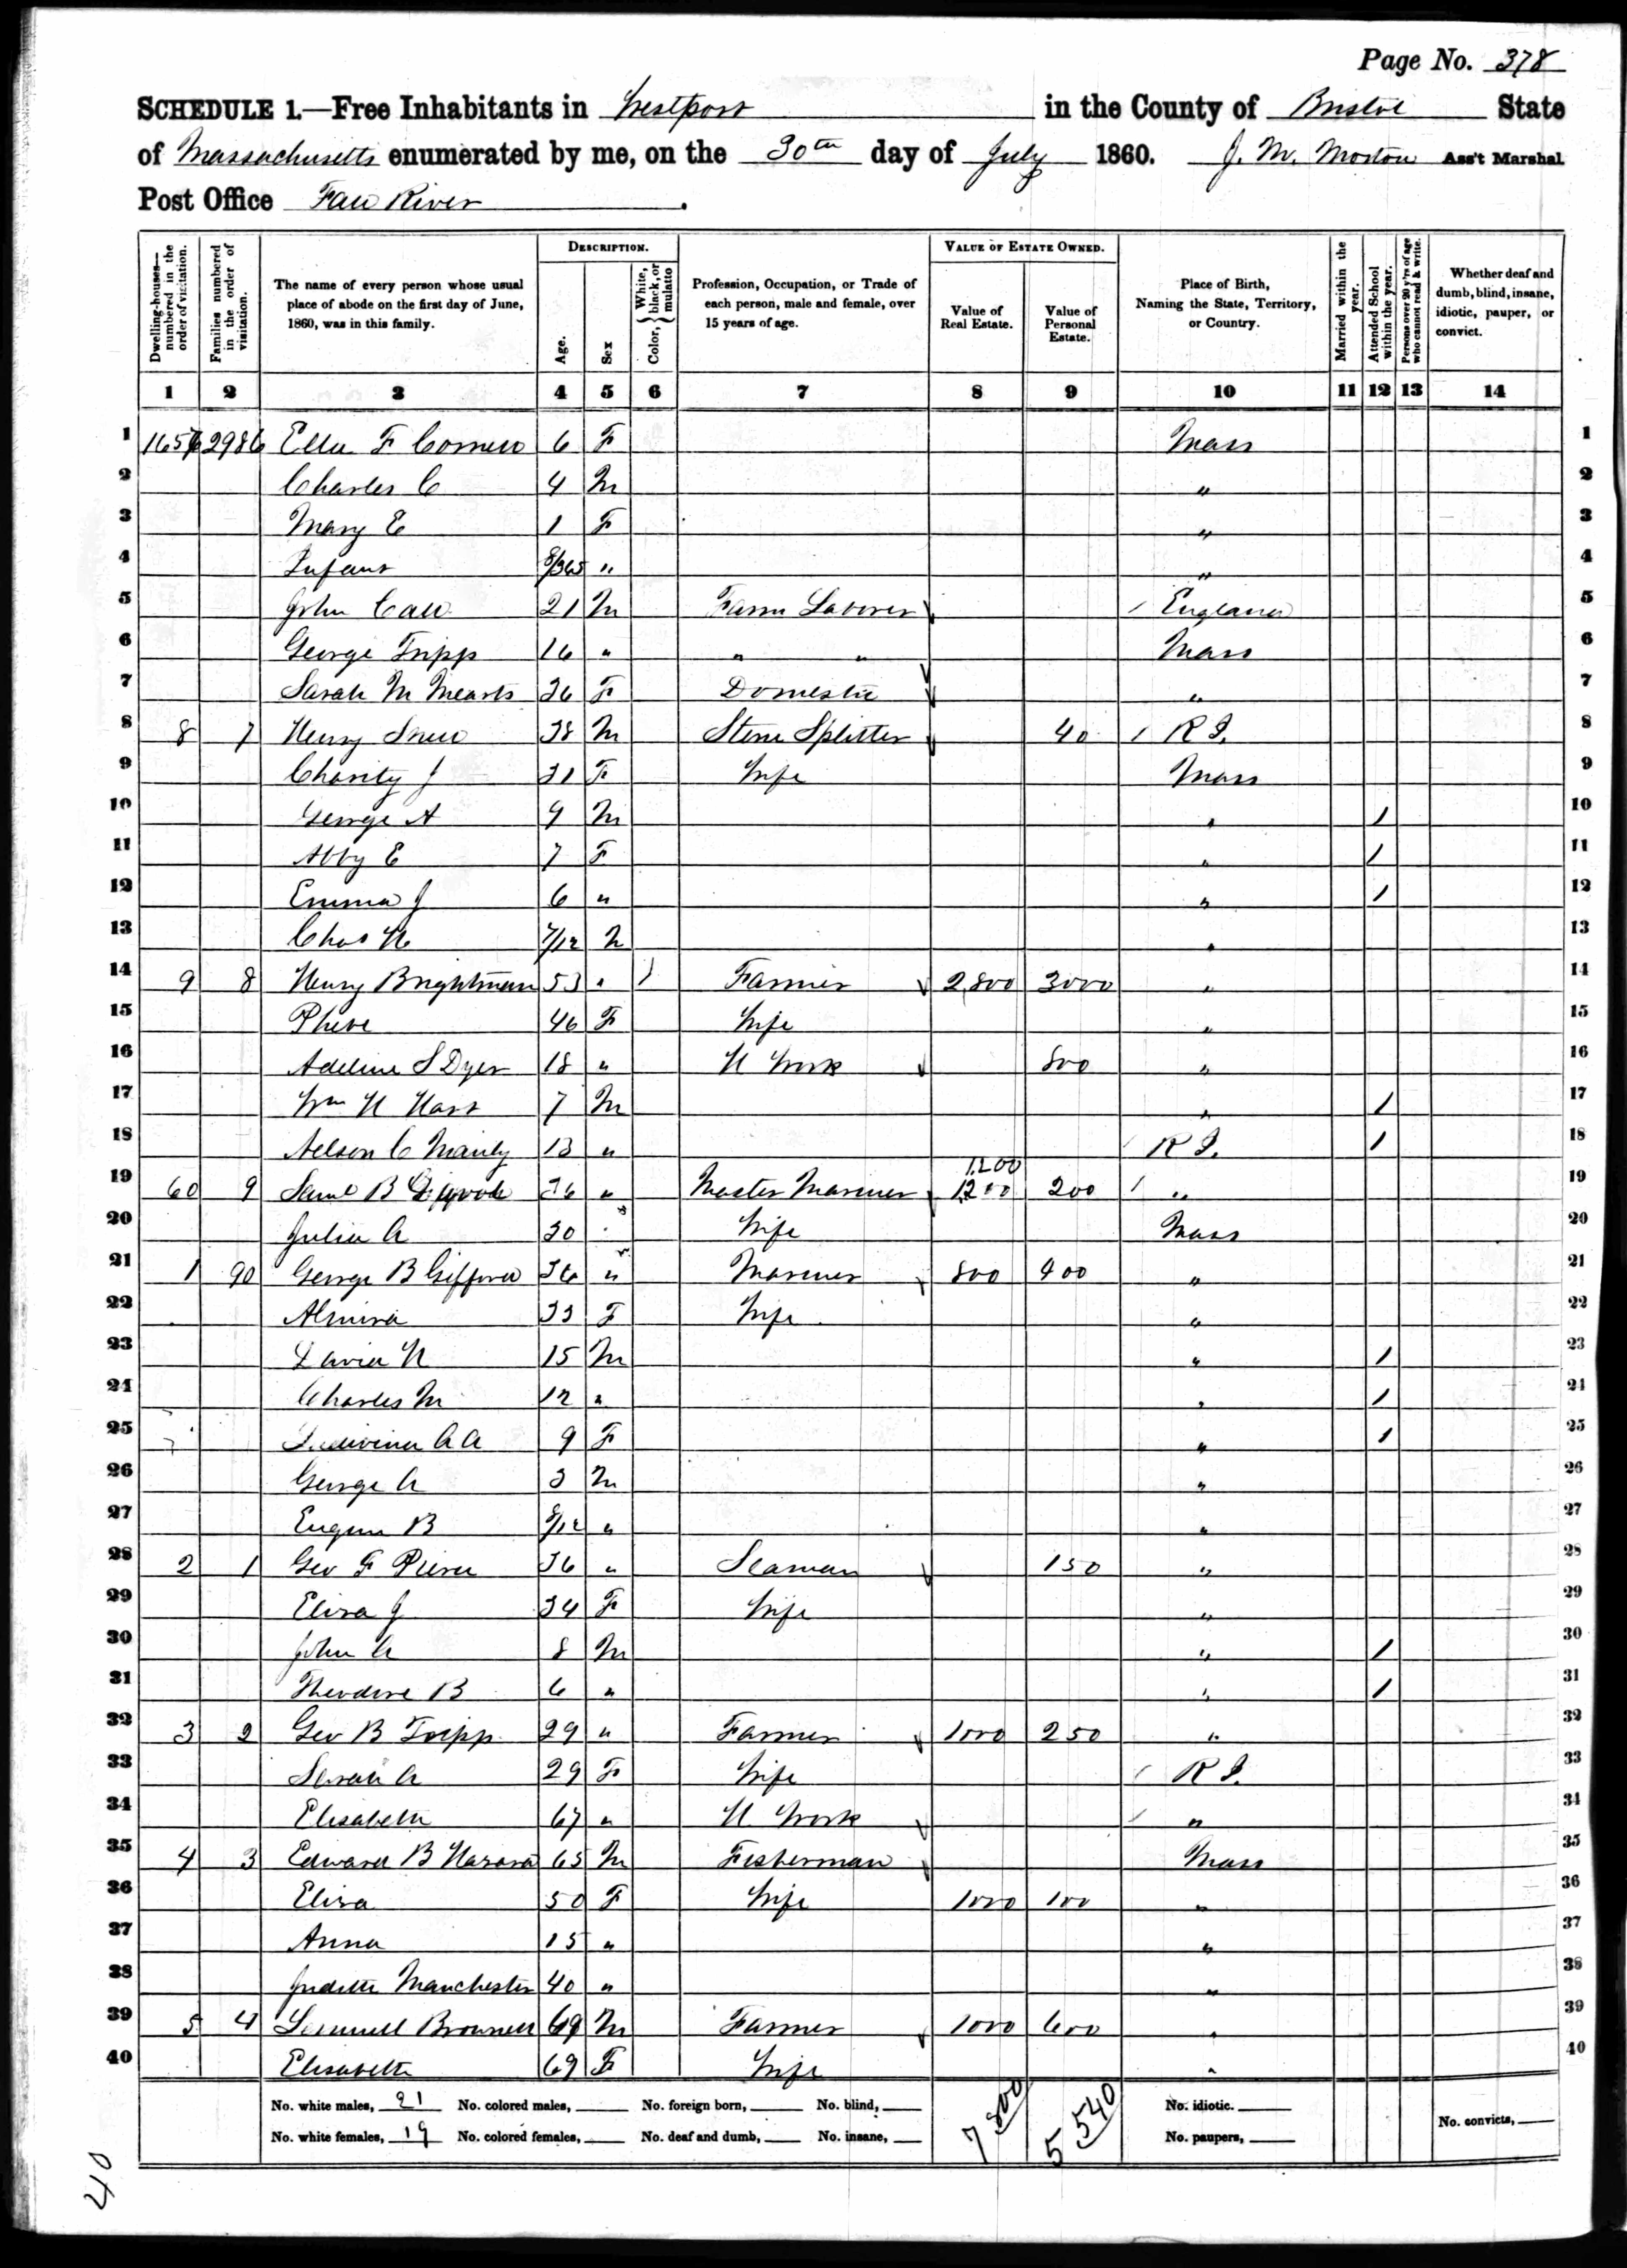 Page No. 378
SCHEDULE 1.—Free Inhabitants in Westport in the County of Bristol State
of Massachusetts enumerated by me, on the 30th day of July 1860. J. M. Morton Ass't Marshal
Post Office Fall River.
Dwelling-houses—numbered in the order of visitation.
Families numbered in the order of visitation.
The name of every person whose usual place of abode on the first day of June, 1860, was in this family.
DESCRIPTION.
Age.
Sex
Color, White, black, or mulatto
Profession, Occupation, or Trade of each person, male and female, over 15 years of age.
VALUE OF ESTATE OWNED.
Value of Real Estate.
Value of Personal Estate.
Place of Birth, Naming the State, Territory, or Country.
Married within the year.
Attended School within the year.
Persons over 20 y'rs of age who cannot read & write.
Whether deaf and dumb, blind, insane, idiotic, pauper, or convict.
1 2 3 4 5 6 7 8 9 10 11 12 13 14
1 2986 Ella F Cornell 6 F Mass 1
2 Charles C 4 M " 2
3 Mary E 1 F " 3
4 Infant 8/365 " " 4
5 John Call 21 M Farm Laborer / England 5
6 George Tripp 16 " " " Mass 6
7 Sarah M 26 F Domestic " 7
8 8 7 Henry Snell 38 M Stone Splitter 40 / R I. 8
9 Charity J 31 F Wife Mass 9
10 George A 9 M " / 10
11 Abby E 7 F " / 11
12 Emma J 6 " " / 12
13 Chas H 7/12 M " 13
14 9 8 Henry Brightman 53 " / Farmer 2,800 3000 " 14
15 Phebe 46 F Wife " 15
16 Adeline S Dyer 18 " H Work 800 " 16
17 Wm H Hart 7 M " / 17
18 Nelson C Manly 13 " / R I. / 18
19 60 9 Saml B 36 " Master Mariner 1200 1200 200 / " 19
20 Julia A 30 Wife Mass 20
21 1 90 George B Gifford 36 " Mariner 800 400 " 21
22 Almira 33 F Wife " 22
23 David H 15 M " / 23
24 Charles M 12 " " / 24
25 A A 9 F " / 25
26 George A 3 M " 26
27 Eugene B 8/12 " " 27
28 2 1 Geo F Pierce 36 " Seaman 150 " 28
29 Eliza J 34 F Wife " 29
30 John A 8 M " / 30
31 Theodore B 6 " " / 31
32 3 2 Geo B Tripp 29 " Farmer 1000 250 " 32
33 Sarah A 29 F Wife / R I. 33
34 Elisabeth 67 " H Work / " 34
35 4 3 Edward B Hazard 65 M Fisherman Mass 35
36 Eliza 50 F Wife 1000 100 " 36
37 Anna 15 " " 37
38 Judith Manchester 40 " " 38
39 5 4 Lemuell Brownell 69 M Farmer 1000 600 " 39
40 Elisabeth 69 F Wife " 40
No. white males, 21 No. colored males, No. foreign born, No. blind, 7 800 5 540 No. idiotic. No. convicts,
No. white females, 19 No. colored females, No. deaf and dumb, No. insane, No. paupers,
40